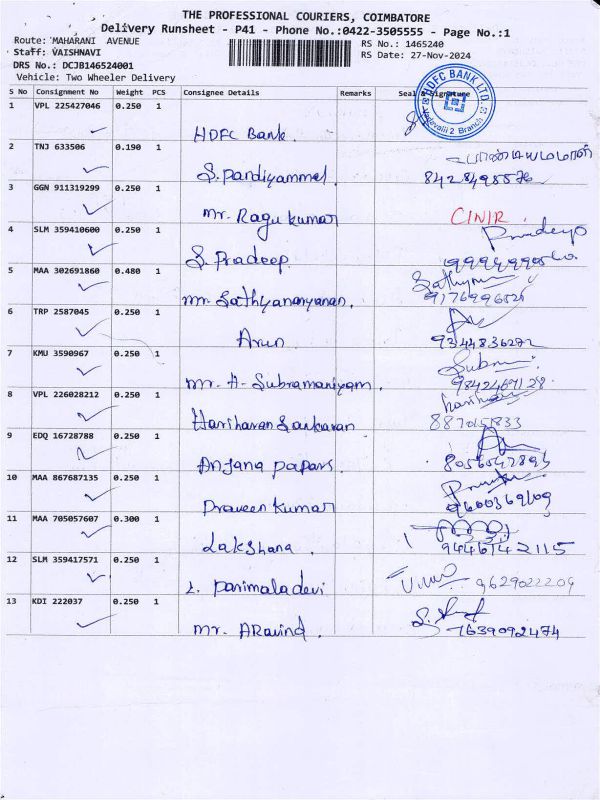 THE PROFESSIONAL COURIERS, COIMBATORE
Delivery Runsheet - P41 - Phone No.:0422-3505555 - Page No.:1
Route: MAHARANI AVENUE
RS No.: 1465240
Staff: VAISHNAVI
RS Date: 27-Nov-2024
DRS No.: DCJB146524001
Vehicle: Two Wheeler Delivery
S No Consignment No Weight PCS Consignee Details Remarks Seal & Signature
HDFC BANK LTD.
Vadavalli 2 Branch
1 VPL 225427046 0.250 1
HDFC Bank.
2 TNJ 633506 0.190 1
S. Pandiyammal.
3 GGN 911319299 0.250 1
Mr. Ragu kumar CINIR.
4 SLM 359410600 0.250 1 Pradeep
S. Pradeep
5 MAA 302691860 0.480 1 Sathya
Mr. Sathyanarayanan.
6 TRP 2587045 0.250 1
Arun 9344836272
7 KMU 3590967 0.250 1
Mr. A. Subramaniyam.
8 VPL 226028212 0.250 1
Hariharan Sankaran
9 EDQ 16728788 0.250 1
Anjana papars.
10 MAA 867687135 0.250 1
Praveen Kumar 9600369109
11 MAA 705057607 0.300 1
Lakshana. 9446142115
12 SLM 359417571 0.250 1
L. Parimaladevi 9629022209
13 KDI 222037 0.250 1
Mr. ARavind. 7639092474